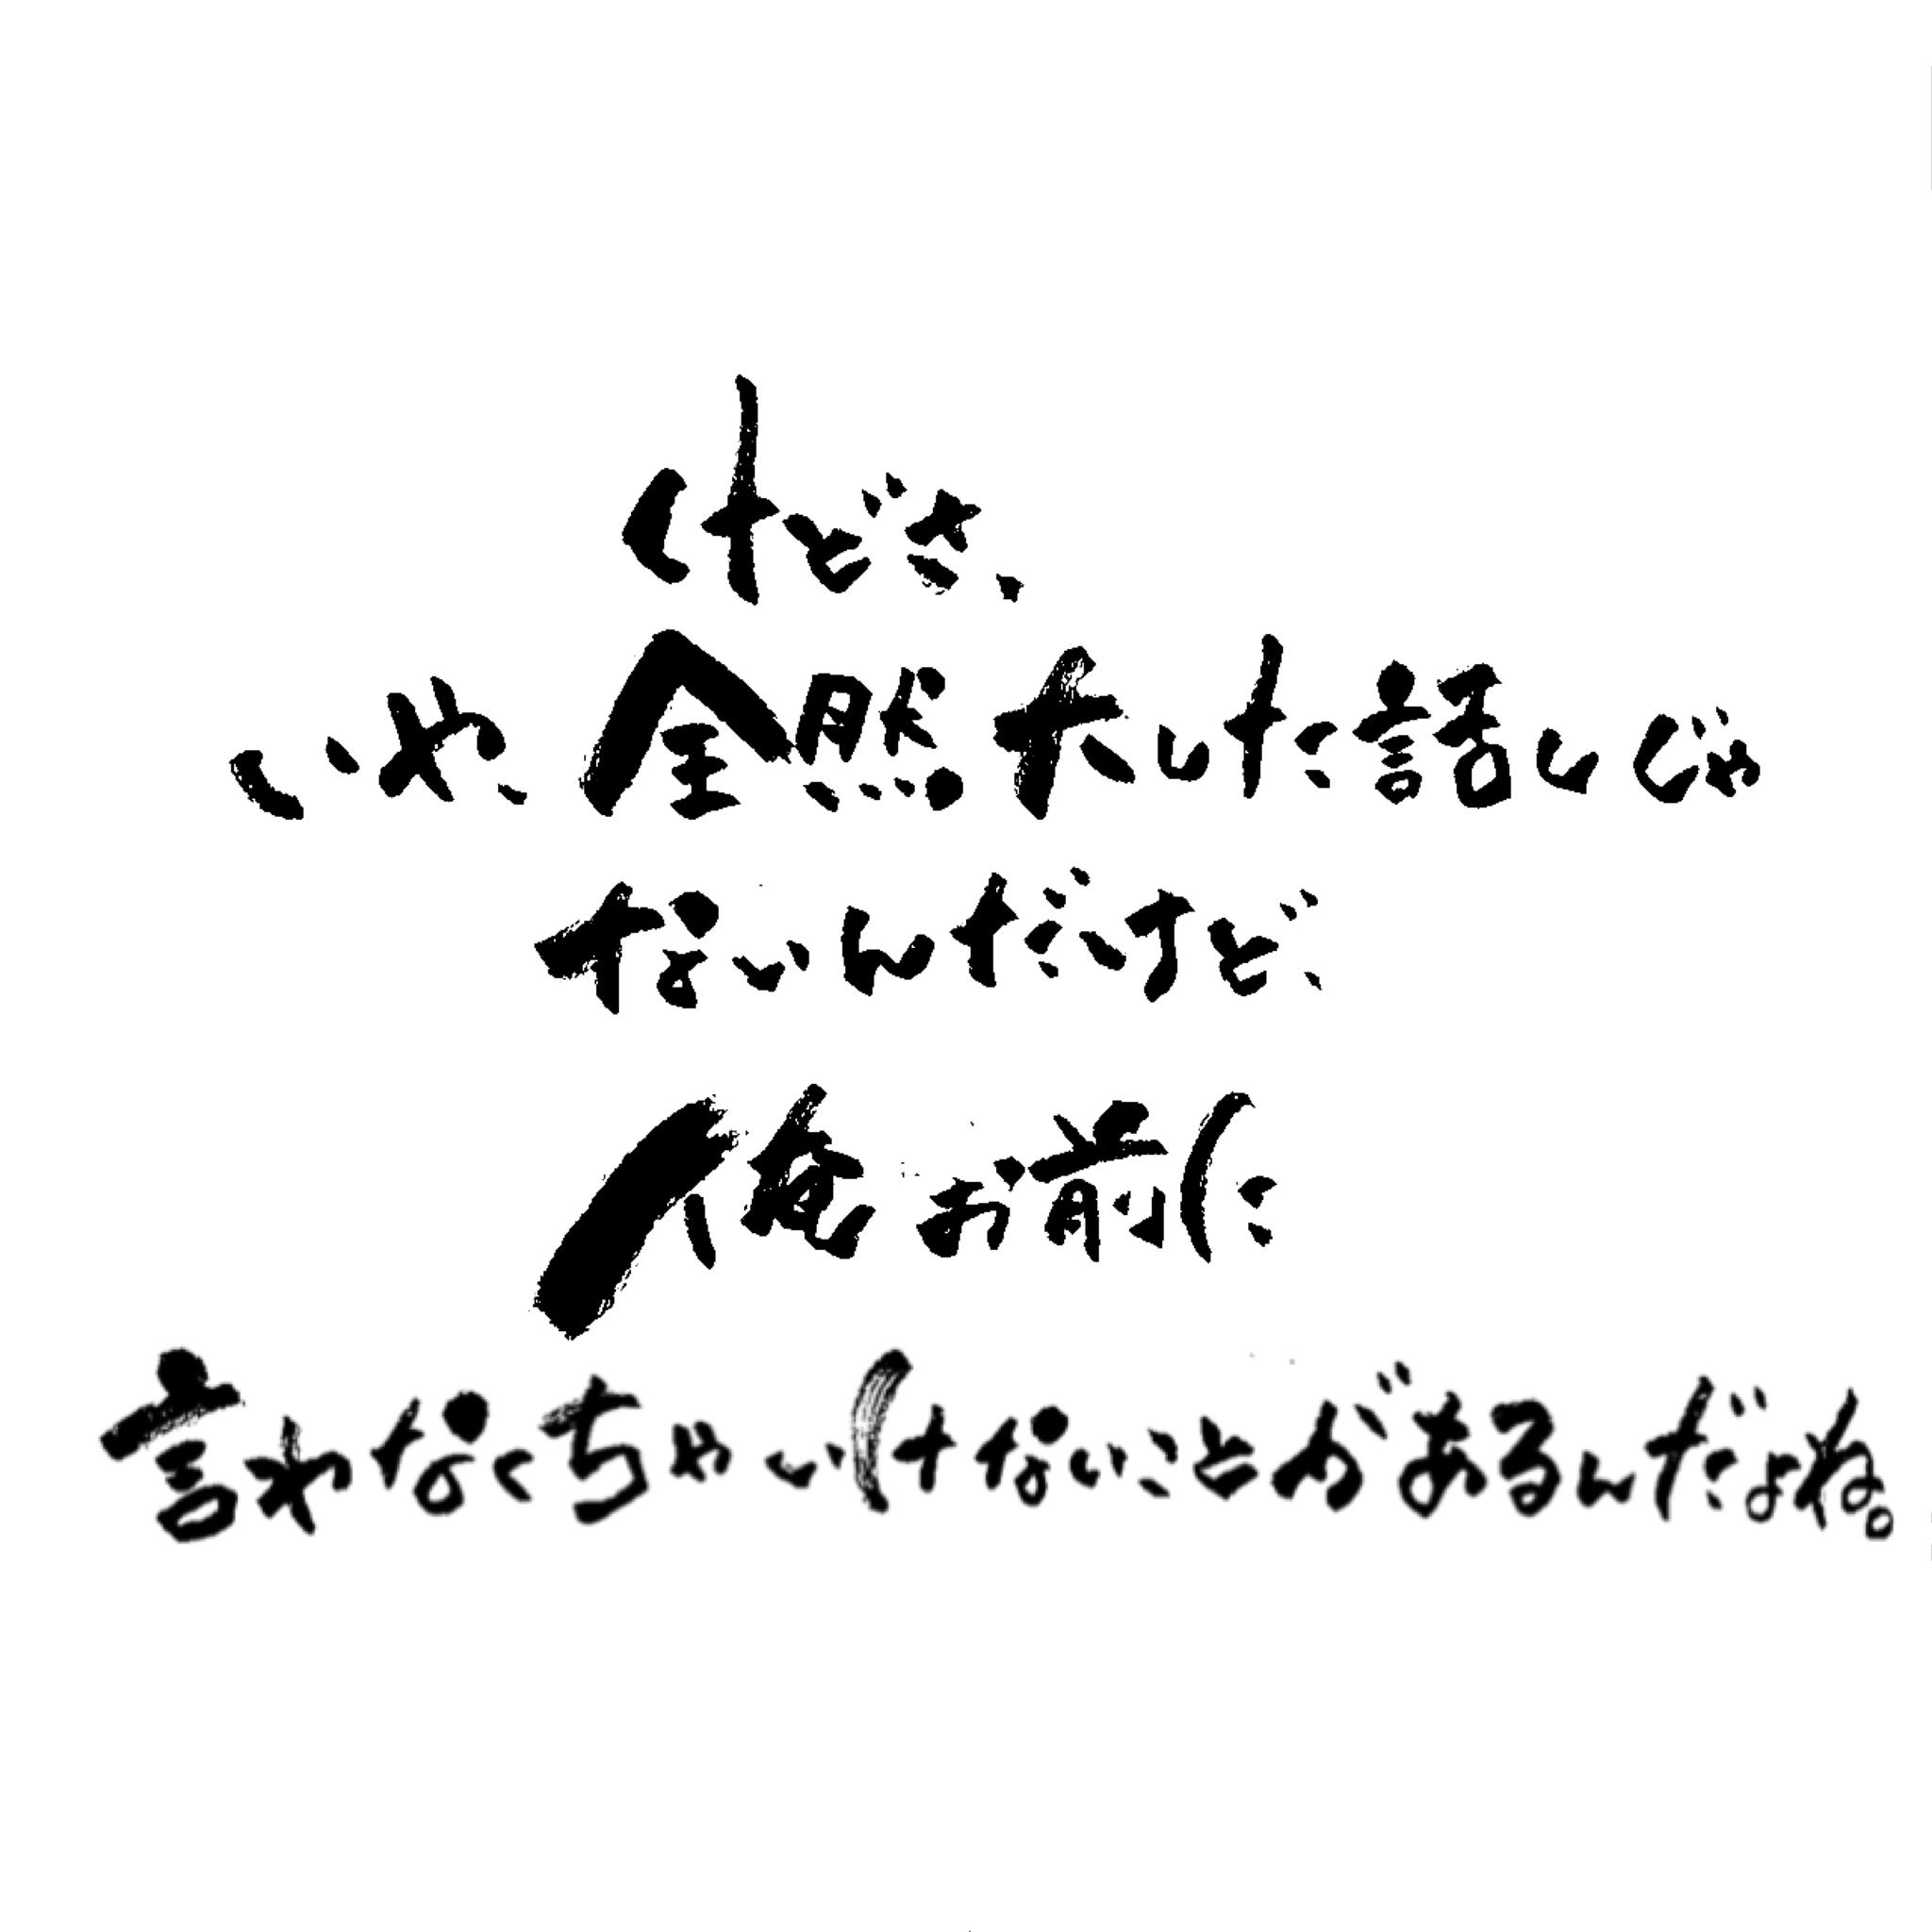 けどさ、
いや、全然大した話しじゃ
ないんだけど、
俺お前に
言わなくちゃいけないことがあるんだよね。